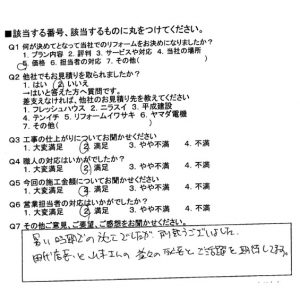 ■該当する番号、該当するものに丸をつけてください。
Q1 何が決めてとなって当社でのリフォームをお決めになりましたか？
1. プラン内容 2. 評判 3. サービスや対応 4. 当社の場所
5. 価格 6. 担当者の対応 7. その他( )
Q2 他社でもお見積りを取られましたか？
1. はい 2. いいえ
→はいと答えた方へ質問です。
差支えなければ、他社のお見積り先を教えてください
1. フレッシュハウス 2. ニラスイ 3. 平成建設
4. テンイチ 5. リフォームイワサキ 6. ヤマダ電機
7. その他( )
Q3 工事の仕上がりについてお聞かせください
1. 大変満足 2. 満足 3. やや不満 4. 不満
Q4 職人の対応はいかがでしたか？
1. 大変満足 2. 満足 3. やや不満 4. 不満
Q5 今回の施工金額についてお聞かせください
1. 大変満足 2. 満足 3. やや不満 4. 不満
Q6 営業担当者の対応はいかがでしたか？
1. 大変満足 2. 満足 3. やや不満 4. 不満
Q7 その他ご意見、ご要望、ご感想をお聞かせください。
暑い時期での施工でしたが、有難うございました。
店長と山本さんの益々の成長とご活躍を期待してます。